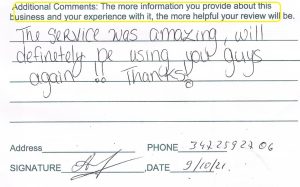 Additional Comments: The more information you provide about this
business and your experience with it, the more helpful your review will be.
The service was amazing, will
definetely be using you guys
again !! Thanks!
Address PHONE 3422592706
SIGNATURE ,DATE 9/10/21.